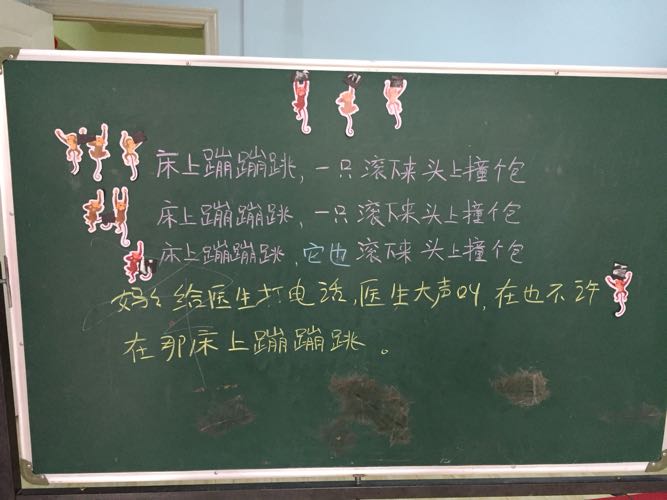 床上蹦蹦跳,一只滚下来头上撞个包
床上蹦蹦跳,一只滚下来头上撞个包
床上蹦蹦跳,它也滚下来头上撞个包
妈々给医生打电话,医生大声叫,在也不许
在那床上蹦蹦跳。